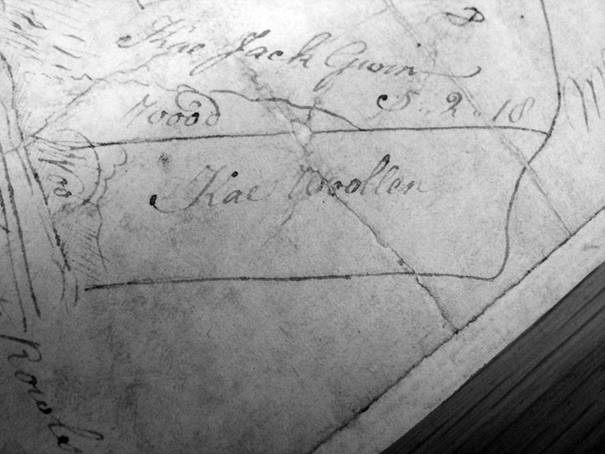 Kae Jack Gwin
Wood 5..2..18
Kae Woollen